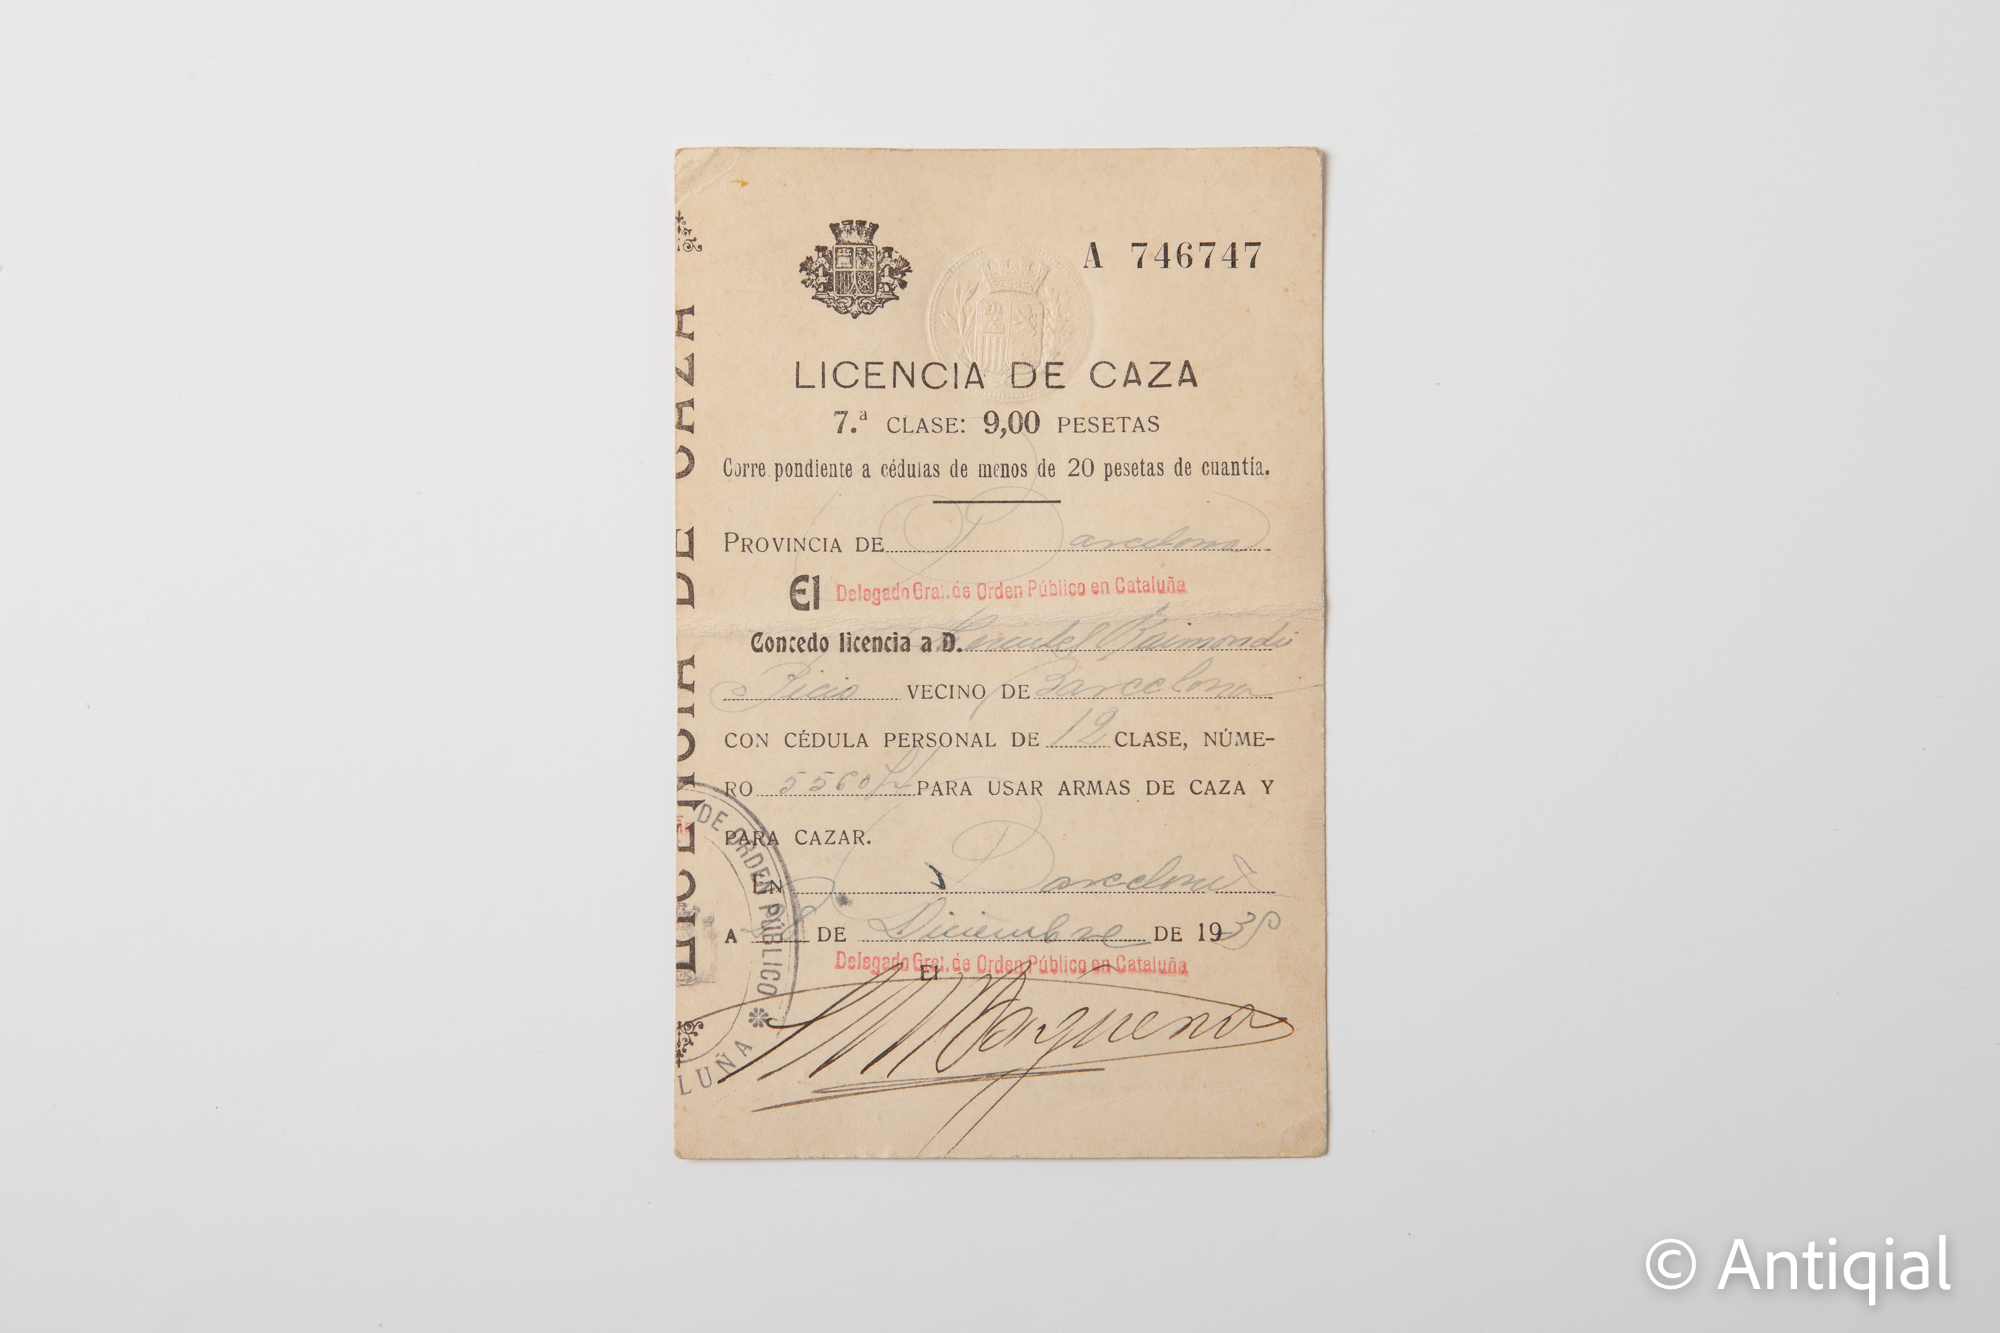 A 746747
LICENCIA DE CAZA
7.ª CLASE: 9,00 PESETAS
Corre pondiente a cédulas de menos de 20 pesetas de cuantía.
PROVINCIA DE Barcelona
El Delegado Gral. de Orden Público en Cataluña
Concedo licencia a D. Raimondi
Picio VECINO DE Barcelona
CON CÉDULA PERSONAL DE 12 CLASE, NÚME-
RO 55604 PARA USAR ARMAS DE CAZA Y
PARA CAZAR.
EN Barcelona
A DE Diciembre DE 193
Delegado Gral. de Orden Público en Cataluña
El
LICENCIA DE CAZA
DE ORDEN PÚBLICO
LUÑA
© Antiqial